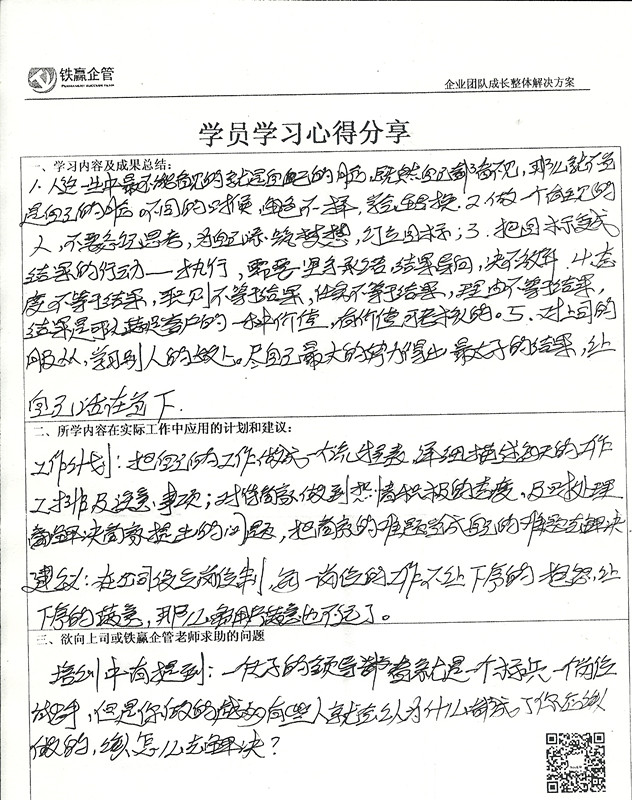 铁赢企管
PERMANENT SUCCESS TEAM
企业团队成长整体解决方案
学员学习心得分享
一、学习内容及成果总结:
1. 人经一生中最不能看见的就是自己的脸,既然自己都看不见,那么就不当
是自己的脸。不同的对换,角色不一样, 2. 做一个自己的
人,不要忘记思考,为自己添筑梦想,订立目标;3. 把目标变成
结果的行动——执行,需要坚守承诺,结果导向,决不放弃。4. 态
度不等于结果,职责不等于结果,任务不等于结果,理由不等于结果,
结果是可以满足客户的一种价值,有价值可长久的。5. 对上司的
服从,学习别人的好上。尽自己最大的努力得出最好的结果,让
自己活在当下.
二、所学内容在实际工作中应用的计划和建议:
工作计划:把自己的工作做成一个流程表,详细描述每天的工作
安排及注意事项;对待商家做到热情积极的态度,及时处理
解决商家提出的问题,把商家的难题当成自己的难题去解决.
建议:在公司设立岗位制,每一岗位的工作不让下序的抱怨,让
下序的满意,那么客户满意也不远了。
三、欲向上司或铁赢企管老师求助的问题
培训中有提到:一位好的领导者就是一个标兵,一个岗位
能手,但是你做的成功有些人就会认为什么都成了你应该
做的,该怎么去解决?